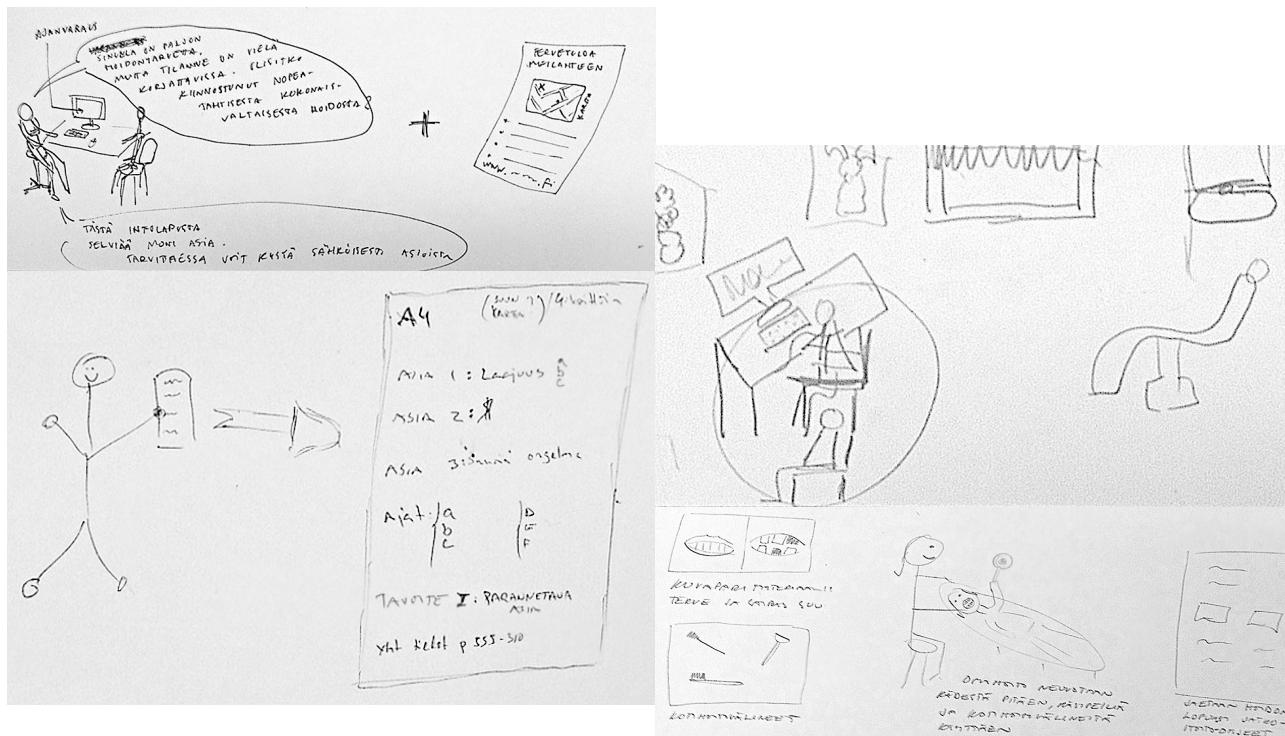 AJANVARAUS
SINULLA ON PALJON
HOIDONTARVETTA,
MUTTA TILANNE ON VIELÄ
KORJATTAVISSA. OLISITKO
KIINNOSTUNUT NOPEA-
TAHTISESTA KOKONAIS-
VALTAISESTA HOIDOSTA?
+
TERVETULOA
MEILLE
KARTTA
www. .fi
TÄSTÄ INFOLAPUSTA
SELVIÄÄ MONI ASIA.
TARVITTAESSA VOIT KYSYÄ SÄHKÖISESTI ASIOISTA
A4
(SUUN
KARTTA)
ASIA 1: Laajuus a
b
c
ASIA 2: $
ASIA 3: ongelma
Ajat: a
b
c
D
E
F
TAVOITE I: PARANNETTAVA
ASIA
yht tiedot p 555-310
KUVAPARI MATERIAALI
TERVE JA SAIRAS SUU
KOTIHOITOVÄLINEET
OMAHOITO NEUVOTAAN
KÄDESTÄ PITÄEN, KÄSIPEILIÄ
JA KOTIHOITOVÄLINEITÄ
KÄYTTÄEN
JAETAAN HOIDON
LOPUKSI JATKO-
HOITO-OHJEET